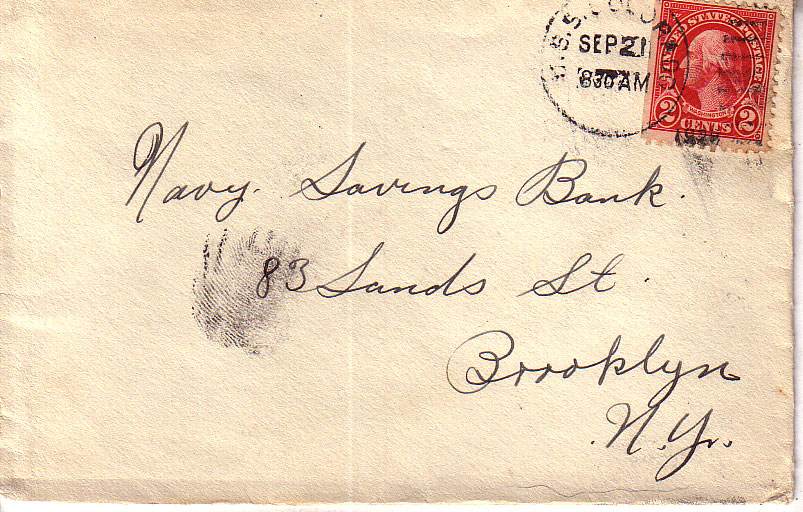 U.S.S.
SEP 21
8 30 AM
UNITED STATES POSTAGE
WASHINGTON
2 CENTS 2
Navy Savings Bank.
83 Sands St.
Brooklyn
N.Y.